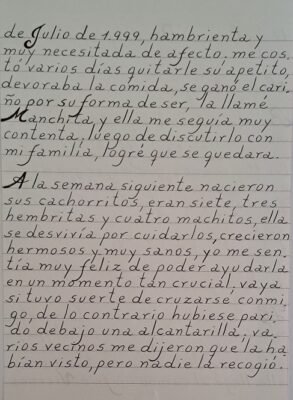 de Julio de 1.999, hambrienta y
muy necesitada de afecto. me cos
tó varios días quitarle su apetito,
devoraba la comida, se ganó el cari_
ño por su forma de ser, la llamé
Manchita, y ella me seguía muy
contenta, luego de discutirlo con
mi familia, logré que se quedara.
A la semana siguiente nacieron
sus cachorritos, eran siete, tres
hembritas y cuatro machitos, ella
se desvivía por cuidarlos, crecieron
hermosos y muy sanos, yo me sen_
tía muy feliz de poder ayudarla
en un momento tan crucial, vaya
si tuvo suerte de cruzarse conmi_
go, de lo contrario hubiese pari_
do debajo una alcantarilla; va_
rios vecinos me dijeron que la ha
bían visto, pero nadie la recogió.